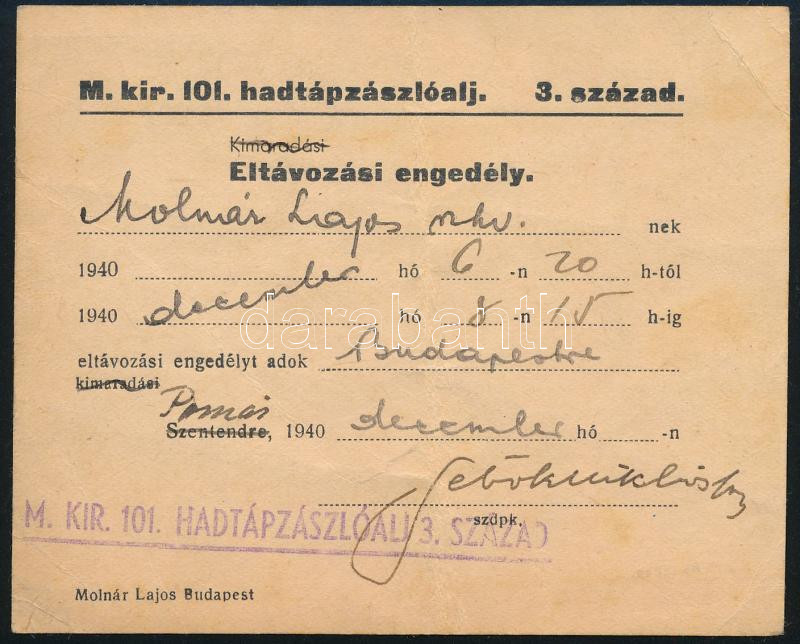 M. kir. 101. hadtápzászlóalj. 3. század.
Kimaradási
Eltávozási engedély.
Molnár Lajos nek
1940 december hó 6 -n 20 h-tól
1940 december hó 8 -n 15 h-ig
eltávozási engedélyt adok Budapestre
kimaradási
Pomáz
Szentendre, 1940 december hó -n
Sebők Miklós
szdpk.
M. KIR. 101. HADTÁPZÁSZLÓALJ 3. SZÁZAD
Molnár Lajos Budapest
darabanth